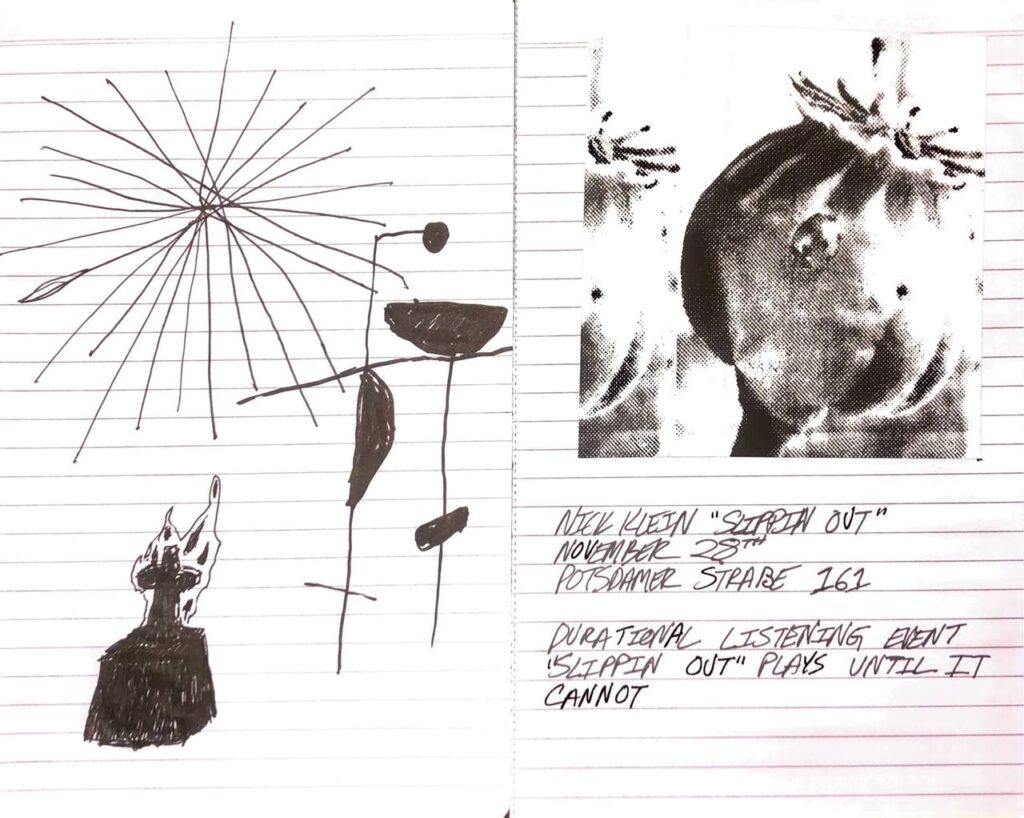 NICK KLEIN "SLIPPIN OUT"
NOVEMBER 28TH
POTSDAMER STRAßE 161
DURATIONAL LISTENING EVENT
"SLIPPIN OUT" PLAYS UNTIL IT
CANNOT